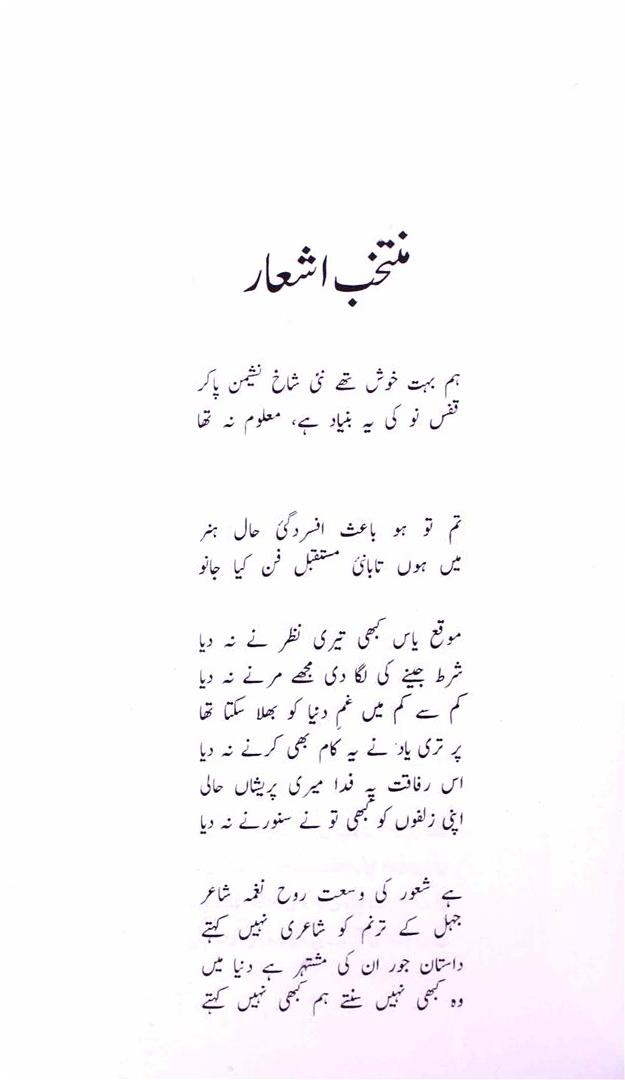 منتخب اشعار
ہم بہت خوش تھے نئی شاخ نشیمن پاکر
قفس نو کی یہ بنیاد ہے، معلوم نہ تھا
تم تو ہو باعث افسردگئ حال ہنر
میں ہوں تابانئ مستقبل فن کیا جانو
موقع یاس کبھی تیری نظر نے نہ دیا
شرط جینے کی لگا دی مجھے مرنے نہ دیا
کم سے کم میں غمِ دنیا کو بھلا سکتا تھا
پر تری یاد نے یہ کام بھی کرنے نہ دیا
اس رفاقت پہ فدا میری پریشاں حالی
اپنی زلفوں کو کبھی تو نے سنورنے نہ دیا
ہے شعور کی وسعت روح نغمہ شاعر
جہل کے ترنم کو شاعری نہیں کہتے
داستان جور ان کی مشتہر ہے دنیا میں
وہ کبھی نہیں سنتے ہم کبھی نہیں کہتے